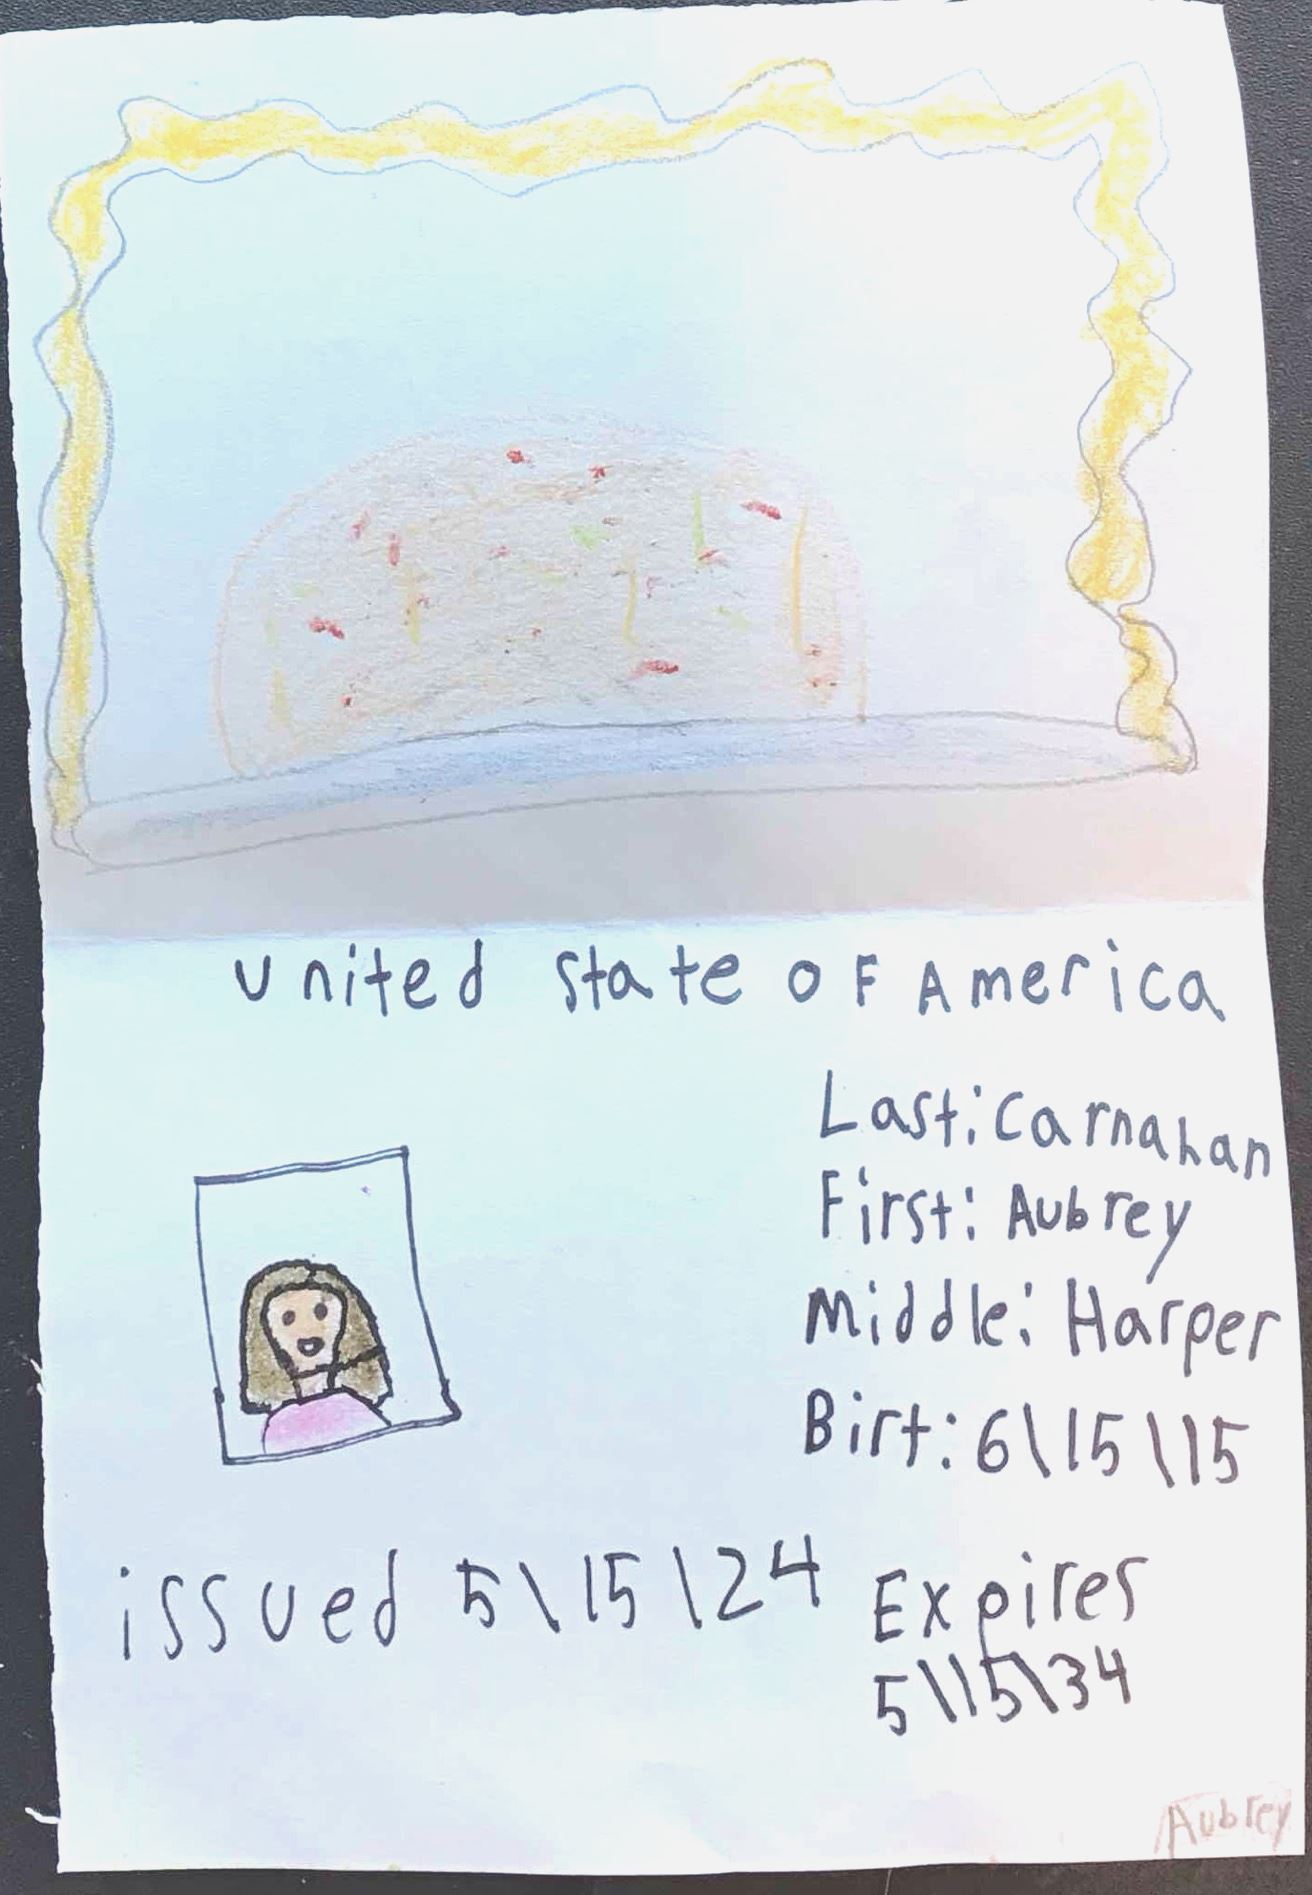 United State OF America
Last: Carnahan
First: Aubrey
Middle: Harper
Birt: 6\15\15
issued 5\15\24
Expires
5\15\34
Aubrey